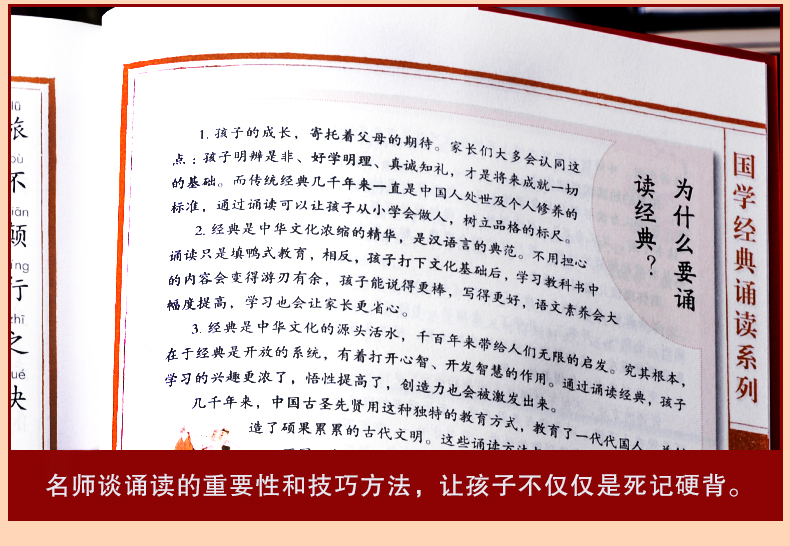 lǚ
旅
bù
不
diān
颠
行
zhī
之
jué
决
国学经典诵读系列
为什么要诵
读经典？
1. 孩子的成长，寄托着父母的期待。家长们大多会认同这
点：孩子明辨是非、好学明理、真诚知礼，才是将来成就一切
的基础。而传统经典几千年来一直是中国人处世及个人修养的
标准，通过诵读可以让孩子从小学会做人，树立品格的标尺。
2. 经典是中华文化浓缩的精华，是汉语言的典范。不用担心
诵读只是填鸭式教育，相反，孩子打下文化基础后，学习教科书中
的内容会变得游刃有余，孩子能说得更棒，写得更好，语文素养会大
幅度提高，学习也会让家长更省心。
3. 经典是中华文化的源头活水，千百年来带给人们无限的启发。究其根本，
在于经典是开放的系统，有着打开心智、开发智慧的作用。通过诵读经典，孩子
学习的兴趣更浓了，悟性提高了，创造力也会被激发出来。
几千年来，中国古圣先贤用这种独特的教育方式，教育了一代代国人，
造了硕果累累的古代文明。这些诵读方法
名师谈诵读的重要性和技巧方法，让孩子不仅仅是死记硬背。